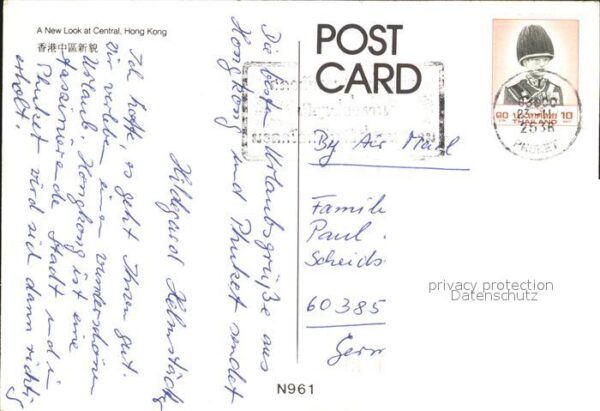 A New Look at Central, Hong Kong
香港中區新貌
POST
CARD
Ich hoffe, es geht Ihnen gut.
Wir verleben einen wunderschönen
Urlaub. Hongkong ist eine
faszinierende Stadt und in
Phuket wird sich dann richtig
erholt.
Die besten Urlaubsgrüße aus
Hongkong und Phuket sendet
Hildegard
By Air Mail
Famil
Paul
Scheids
60385
Germ
privacy protection
Datenschutz
N961
83000
2538
PHUKET
THAILAND
10